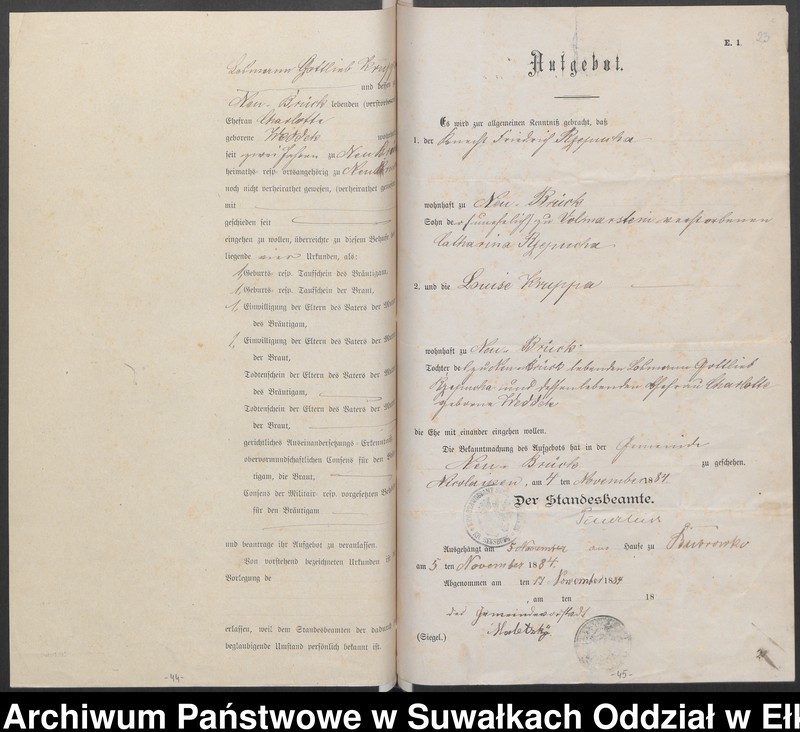 Lohmann Gottlieb Krupp
und dessen
Neu-Brück lebenden (verstorbenen
Ehefrau Charlotte
geborene Weddek
seit zwei Jahren zu Neu
heimaths- resp. ortsangehörig zu Neu
noch nicht verheirathet gewesen, (verheirathet gewesen
mit
geschieden seit
eingehen zu wollen, überreichte zu diesem Behufe
liegende vier Urkunden, als:
1, Geburts- resp. Taufschein des Bräutigam,
1, Geburts- resp. Taufschein der Braut,
1, Einwilligung der Eltern des Vaters der
des Bräutigam,
1, Einwilligung der Eltern des Vaters der
der Braut,
Todtenschein der Eltern des Vaters der
des Bräutigam,
Todtenschein der Eltern des Vaters der
der Braut,
gerichtliches Auseinandersetzungs-Erkenntniß
obervormundschaftlichen Consens für den
tigam, die Braut,
Consens der Militair- resp. vorgesetzten
für den Bräutigam
und beantrage ihr Aufgebot zu veranlassen.
Von vorstehend bezeichneten Urkunden
Vorlegung de
erlassen, weil dem Standesbeamten der dadurch
beglaubigende Umstand persönlich bekannt ist.
-44-
E. 1.
23
Aufgebot.
Es wird zur allgemeinen Kenntniß gebracht, daß
1. der Knecht Friedrich Rzepucha
wohnhaft zu Neu-Brück
Sohn der (unehelich) zu Volmarstein verstorbenen
Catharina Rzepucha
2. und die Louise Kruppa
wohnhaft zu Neu-Brück
Tochter des zu Neu-Brück lebenden Lohmann Gottlieb
Rzepucha und dessen lebenden Ehefrau Charlotte
geborene Weddek
die Ehe mit einander eingehen wollen.
Die Bekanntmachung des Aufgebots hat in der Gemeinde
Neu-Brück zu geschehen.
Nicolaiken, am 4 ten November 1884
Der Standesbeamte.
Ausgehängt am 5 November am Hause zu
am 5 ten November 1884.
Abgenommen am ten November 1884
am ten 18
der Gemeindevorstand
(Siegel.)
-45-
Archiwum Państwowe w Suwałkach Oddział w Eł